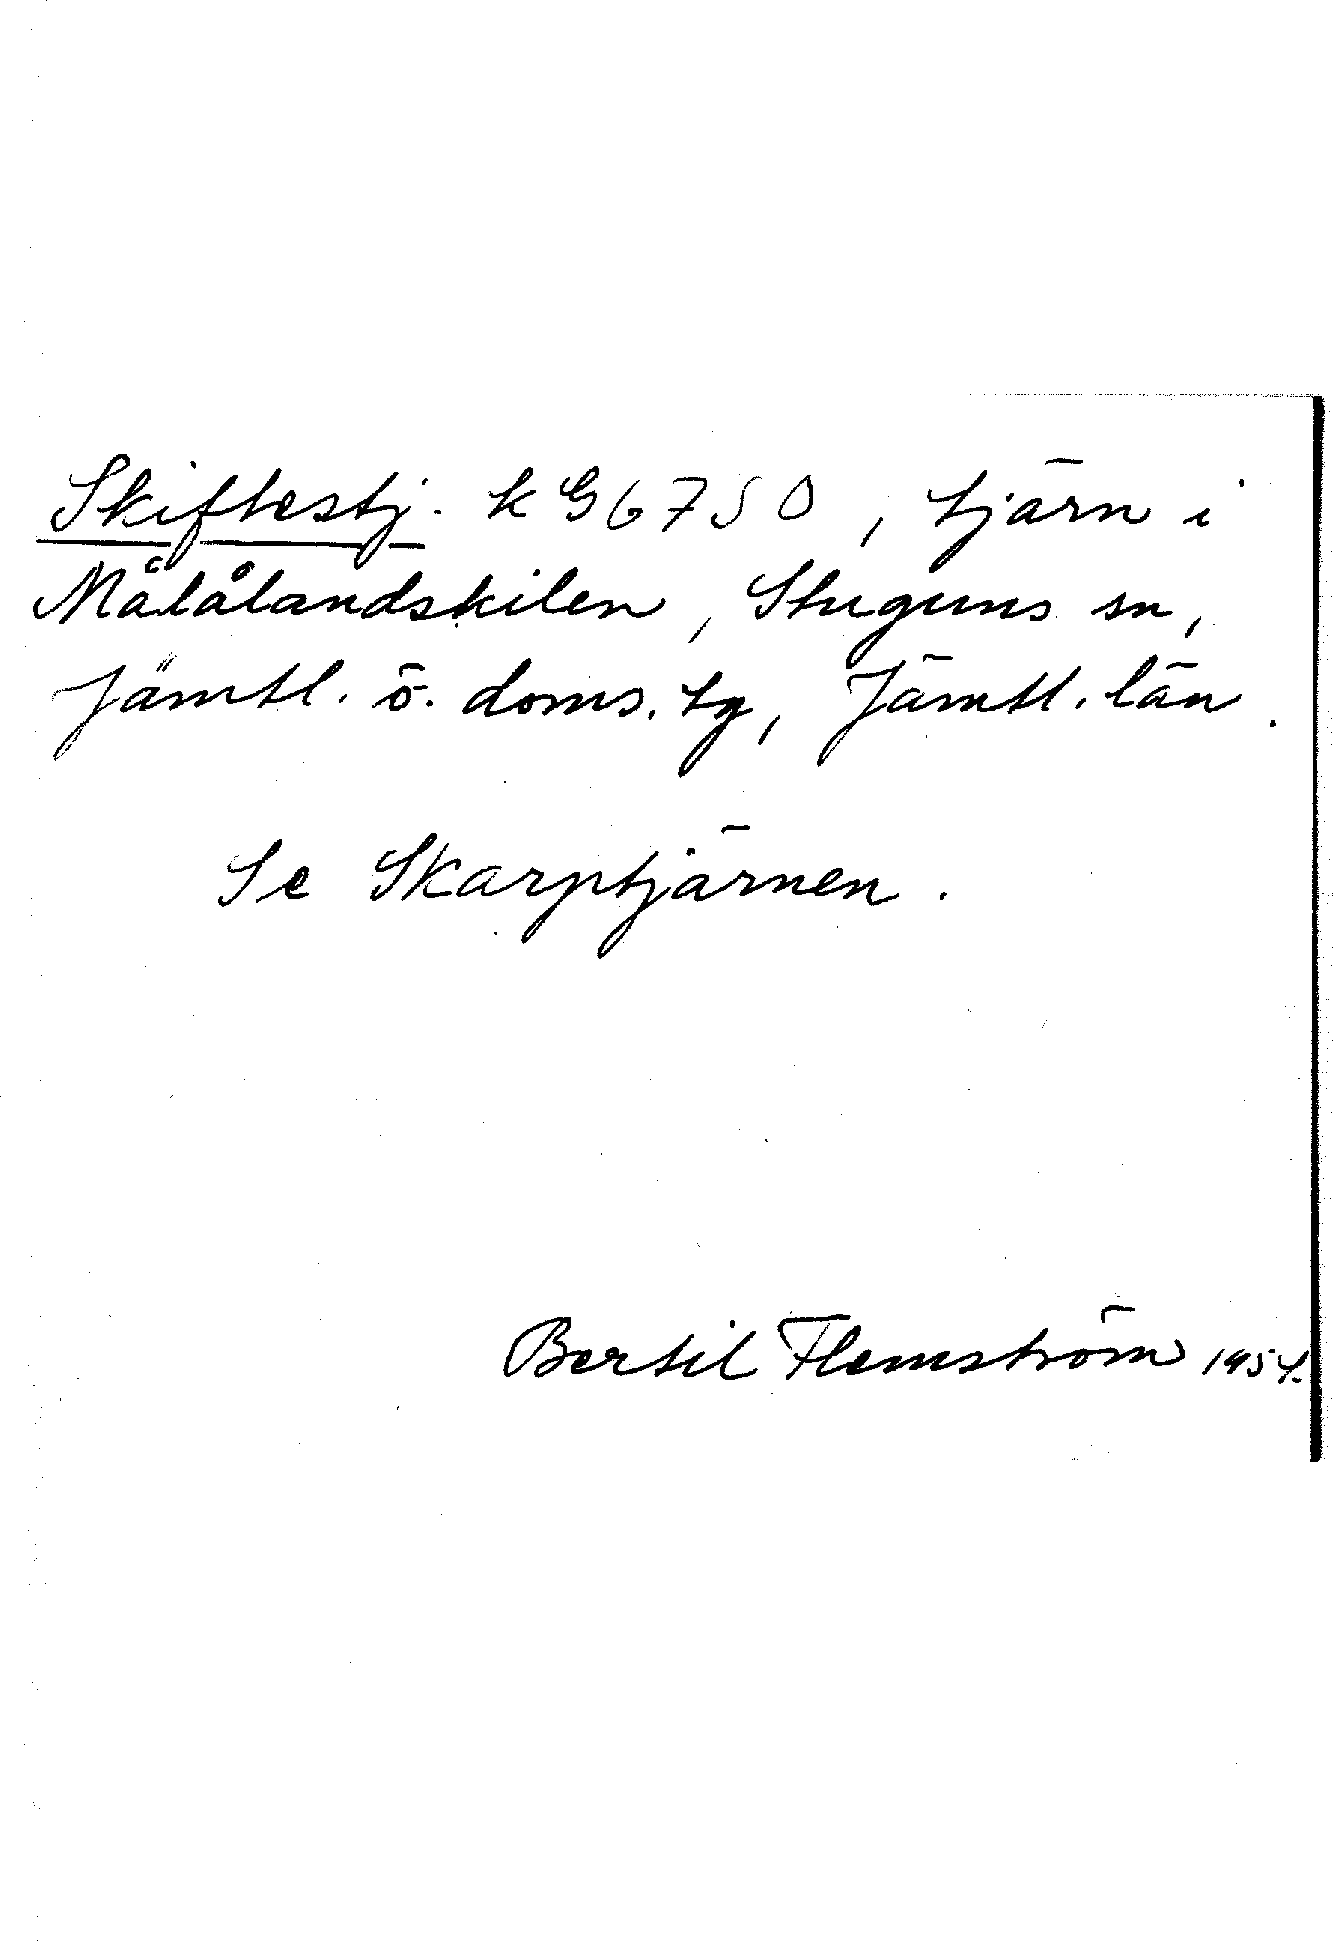 Skiftestj. k G 6750, tjärn i
Målålandskilen, Stuguns sn,
Jämtl. ö. doms. tg, Jämtl. län.
Se Skarptjärnen.
Bertil Flemström 1954.